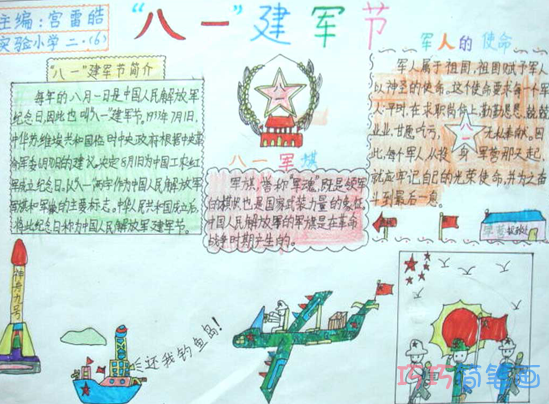 主编:宫雷皓
实验小学二.(6)
"八一"建军节
"八一"建军节简介
每年的八月一日是中国人民解放军
纪念日,因此也叫"八一"建军节。1933年7月1日,
中华苏维埃共和国临时中央政府根据中央革
命军委6月30日的建议,决定8月1日为中国工农红
军成立纪念日。从此,八一成为中国人民解放军
军旗和军徽的主要标志。中华人民共和国成立后,
将此纪念日称为中国人民解放军建军节。
八一
八一军旗
军旗,常称"军魂",既是领军
的模式也是国家武装力量的象征
中国人民解放军的军旗是在革命
战争时期产生的。
军人的使命
军人属于祖国,祖国赋予军人
以神圣的使命。这使命要求每一个军
人平时,在求职岗位上勤勤恳恳,兢兢
业业,甘愿吃亏,无私奉献。因
此,每个军人从投身军营那天起,
就应牢记自己的光荣使命,并为之奋
斗到最后一息。
八一
神舟九号
还我钓鱼岛!
巧巧简笔画